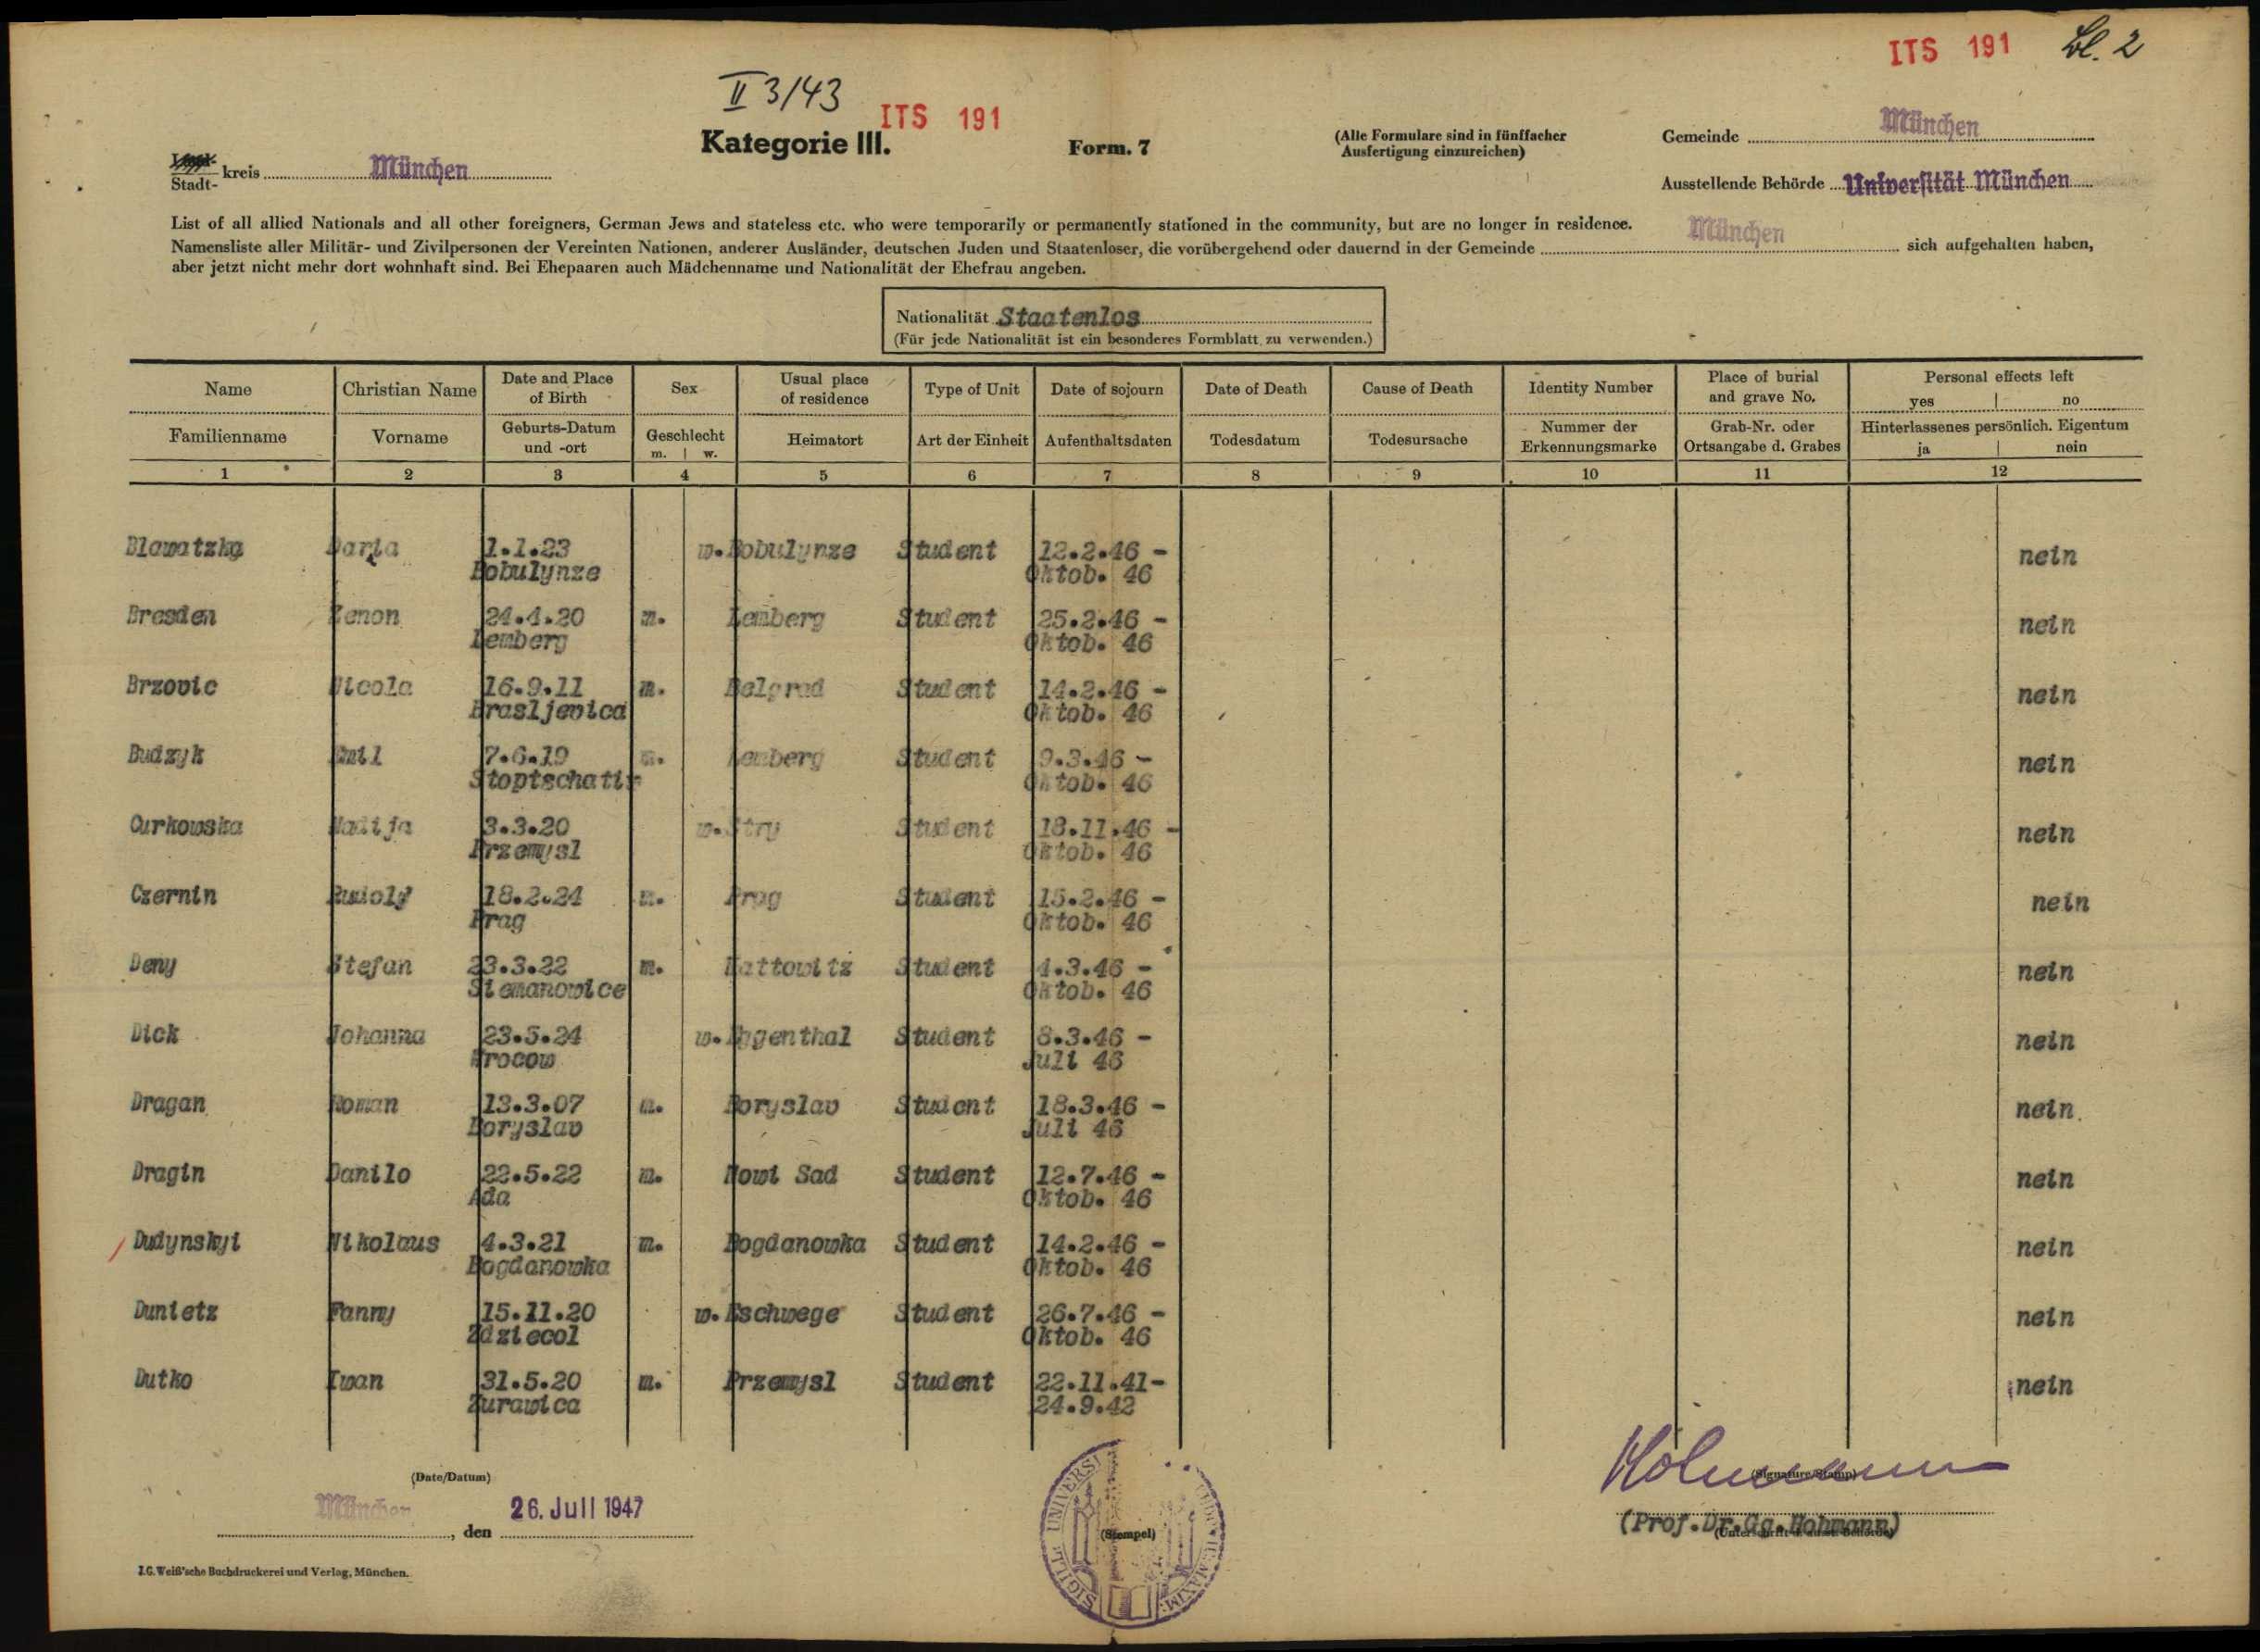 ITS 191 Bl. 2
II 3/43
ITS 191
Kategorie III.
Form. 7
(Alle Formulare sind in fünffacher
Ausfertigung einzureichen)
Gemeinde München
Stadt- kreis München
Ausstellende Behörde Universität München
List of all allied Nationals and all other foreigners, German Jews and stateless etc. who were temporarily or permanently stationed in the community, but are no longer in residence.
Namensliste aller Militär- und Zivilpersonen der Vereinten Nationen, anderer Ausländer, deutschen Juden und Staatenloser, die vorübergehend oder dauernd in der Gemeinde München sich aufgehalten haben,
aber jetzt nicht mehr dort wohnhaft sind. Bei Ehepaaren auch Mädchenname und Nationalität der Ehefrau angeben.
Nationalität Staatenlos
(Für jede Nationalität ist ein besonderes Formblatt zu verwenden.)
Name Christian Name Date and Place of Birth Sex Usual place of residence Type of Unit Date of sojourn Date of Death Cause of Death Identity Number Place of burial and grave No. Personal effects left yes | no
Familienname Vorname Geburts-Datum und -ort Geschlecht m. | w. Heimatort Art der Einheit Aufenthaltsdaten Todesdatum Todesursache Nummer der Erkennungsmarke Grab-Nr. oder Ortsangabe d. Grabes Hinterlassenes persönlich. Eigentum ja | nein
1 2 3 4 5 6 7 8 9 10 11 12
Blawatzka Daria 1.1.23 w. Bobulynze Student 12.2.46 - nein
Bobulynze Oktob. 46
Bresden Zenon 24.4.20 m. Lemberg Student 25.2.46 - nein
Lemberg Oktob. 46
Brzovic Nicola 16.9.11 m. Belgrad Student 14.2.46 - nein
Brasljevica Oktob. 46
Budzyk Emil 7.6.19 m. Lemberg Student 9.3.46 - nein
Stoptschatir Oktob. 46
Curkowska Nadija 3.3.20 w. Stry Student 18.11.46 - nein
Przemysl Oktob. 46
Czernin Rudolf 18.2.24 m. Prag Student 15.2.46 - nein
Prag Oktob. 46
Deny Stefan 23.3.22 m. Kattowitz Student 4.3.46 - nein
Siemanowice Oktob. 46
Dick Johanna 23.5.24 w. Student 8.3.46 - nein
Juli 46
Dragan Roman 13.3.07 m. Boryslav Student 18.3.46 - nein
Boryslav Juli 46
Dragin Danilo 22.5.22 m. Nowi Sad Student 12.7.46 - nein
Ada Oktob. 46
Dudynskyi Nikolaus 4.3.21 m. Bogdanowka Student 14.2.46 - nein
Bogdanowka Oktob. 46
Dunietz Fanny 15.11.20 w. Eschwege Student 26.7.46 - nein
Zdziecol Oktob. 46
Dutko Iwan 31.5.20 m. Przemysl Student 22.11.41- nein
Zurawica 24.9.42
(Date/Datum)
München, den 26. Juli 1947
(Stempel)
(Signature/Stamp)
(Prof.Dr.Gg.Hohmann)
J.G. Weiß'sche Buchdruckerei und Verlag, München.